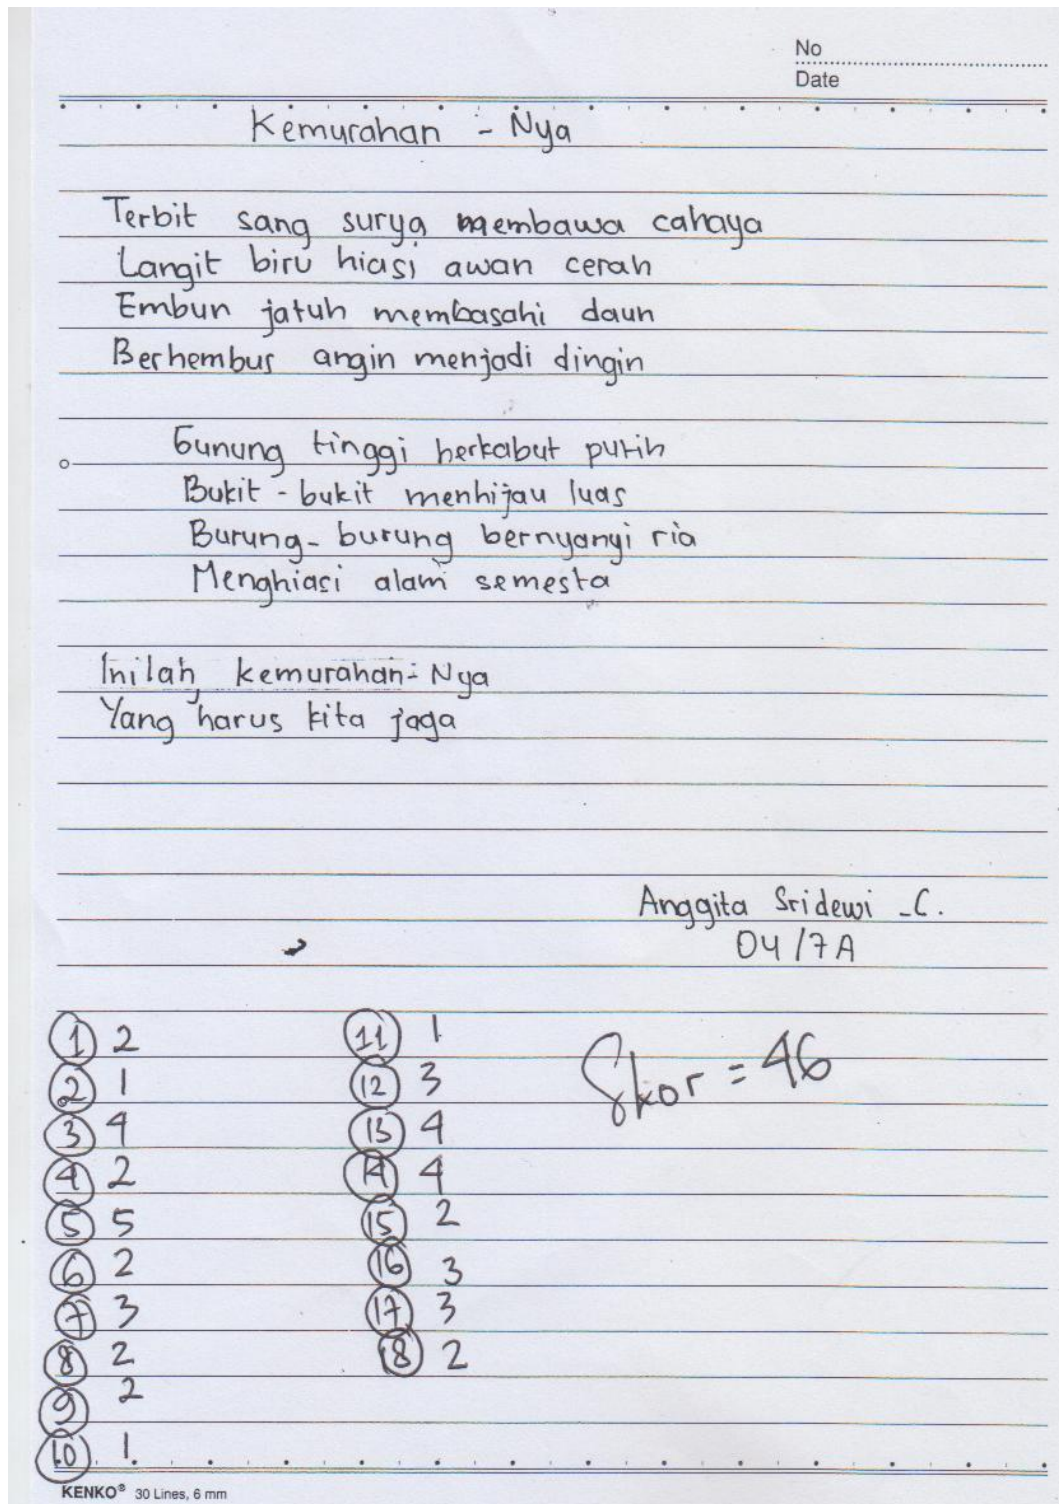 No
Date
Kemurahan - Nya
Terbit sang surya membawa cahaya
Langit biru hiasi awan cerah
Embun jatuh membasahi daun
Berhembus angin menjadi dingin
Gunung tinggi berkabut putih
Bukit - bukit menhijau luas
Burung - burung bernyanyi ria
Menghiasi alam semesta
Inilah kemurahan - Nya
Yang harus kita jaga
Anggita Sridewi - C.
04 / 7A
1 2
2 1
3 4
4 2
5 5
6 2
7 3
8 2
9 2
10 1
11 1
12 3
13 4
14 4
15 2
16 3
17 3
18 2
Skor = 46
KENKO® 30 Lines, 6 mm